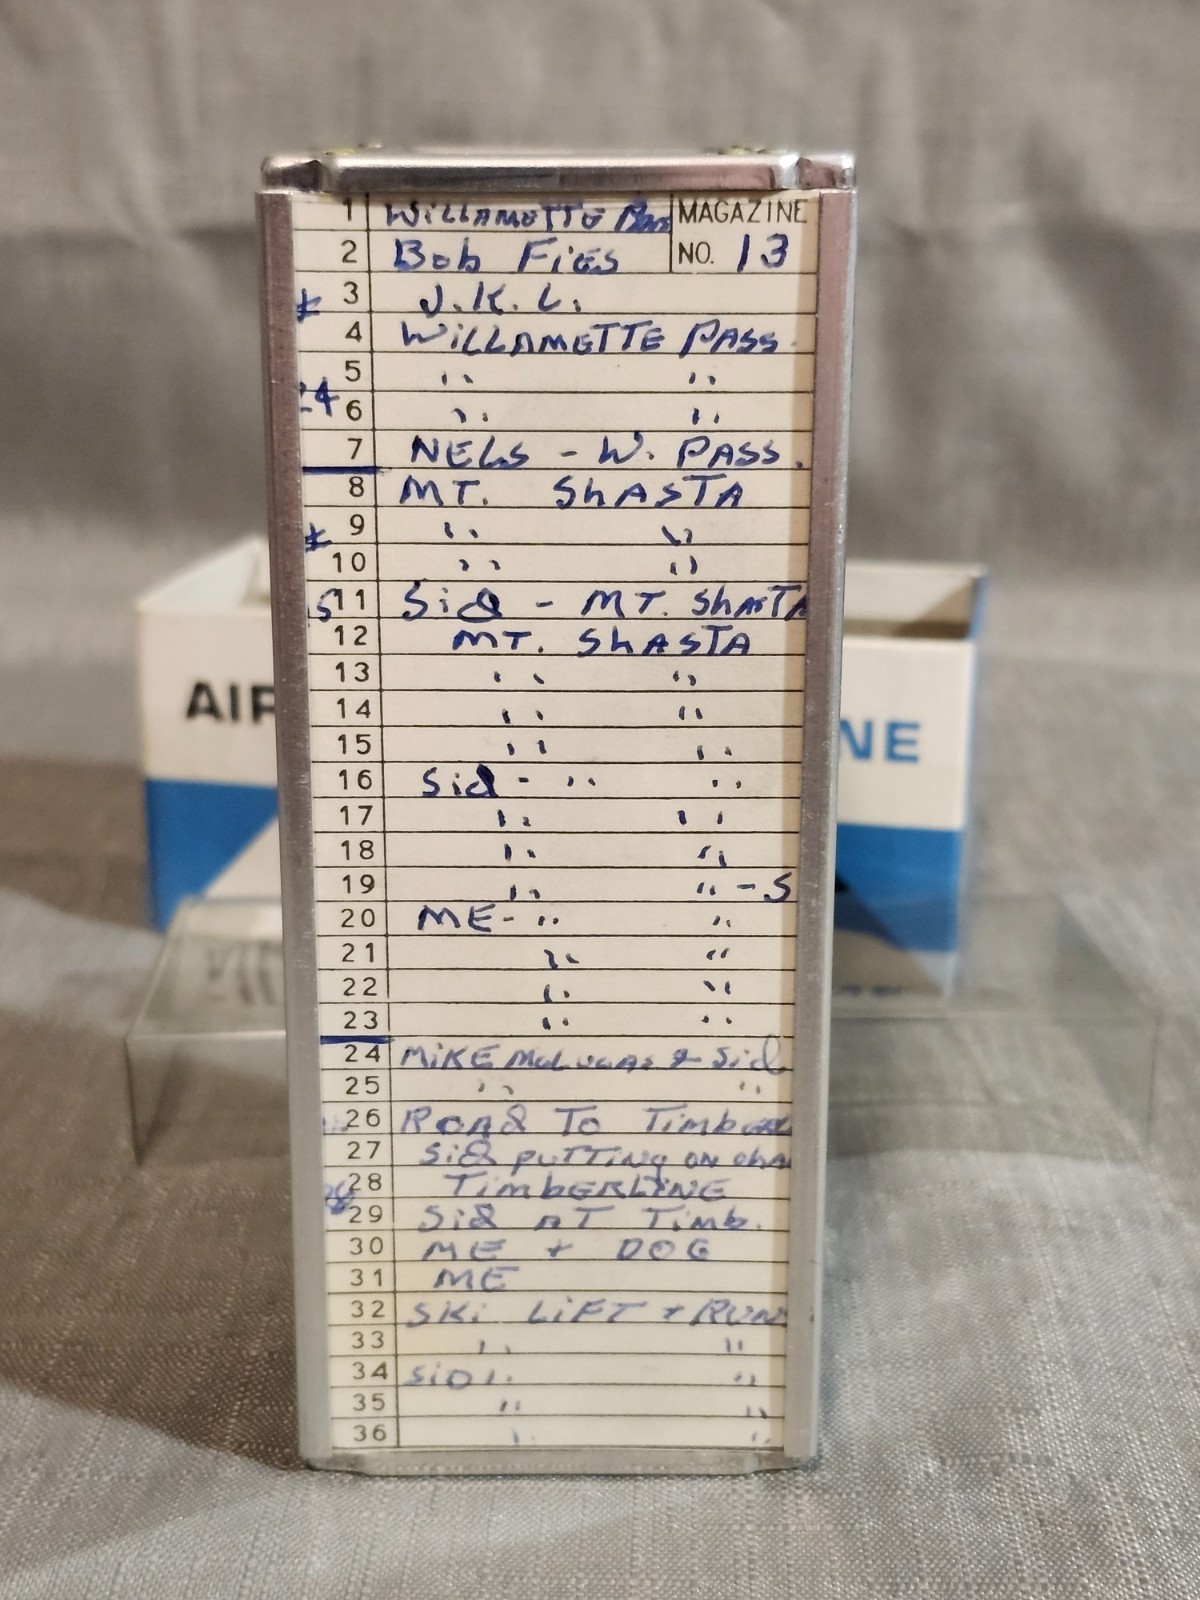 1 WILLAMETTE Pass MAGAZINE
2 Bob Fies NO. 13
* 3 J.K.L.
4 WILLAMETTE PASS
5 " "
24 6 " "
7 NELS - W. PASS.
8 MT. ShASTA
* 9 " "
10 " "
11 Sid - MT. ShASTA
12 MT. ShASTA
13 " "
14 " "
15 " "
16 Sid - " "
17 " "
18 " "
19 " " - S
20 ME - " "
21 " "
22 " "
23 " "
24 MIKE McLucas & Sid
25 " "
26 ROAd TO Timb
27 Sid puTTiNg ON cha
28 TimbERLINE
29 Sid AT Timb.
30 ME + DOG
31 ME
32 SKi LiFT + RUN
33 " "
34 SiD " "
35 " "
36 " "
AIR
NE